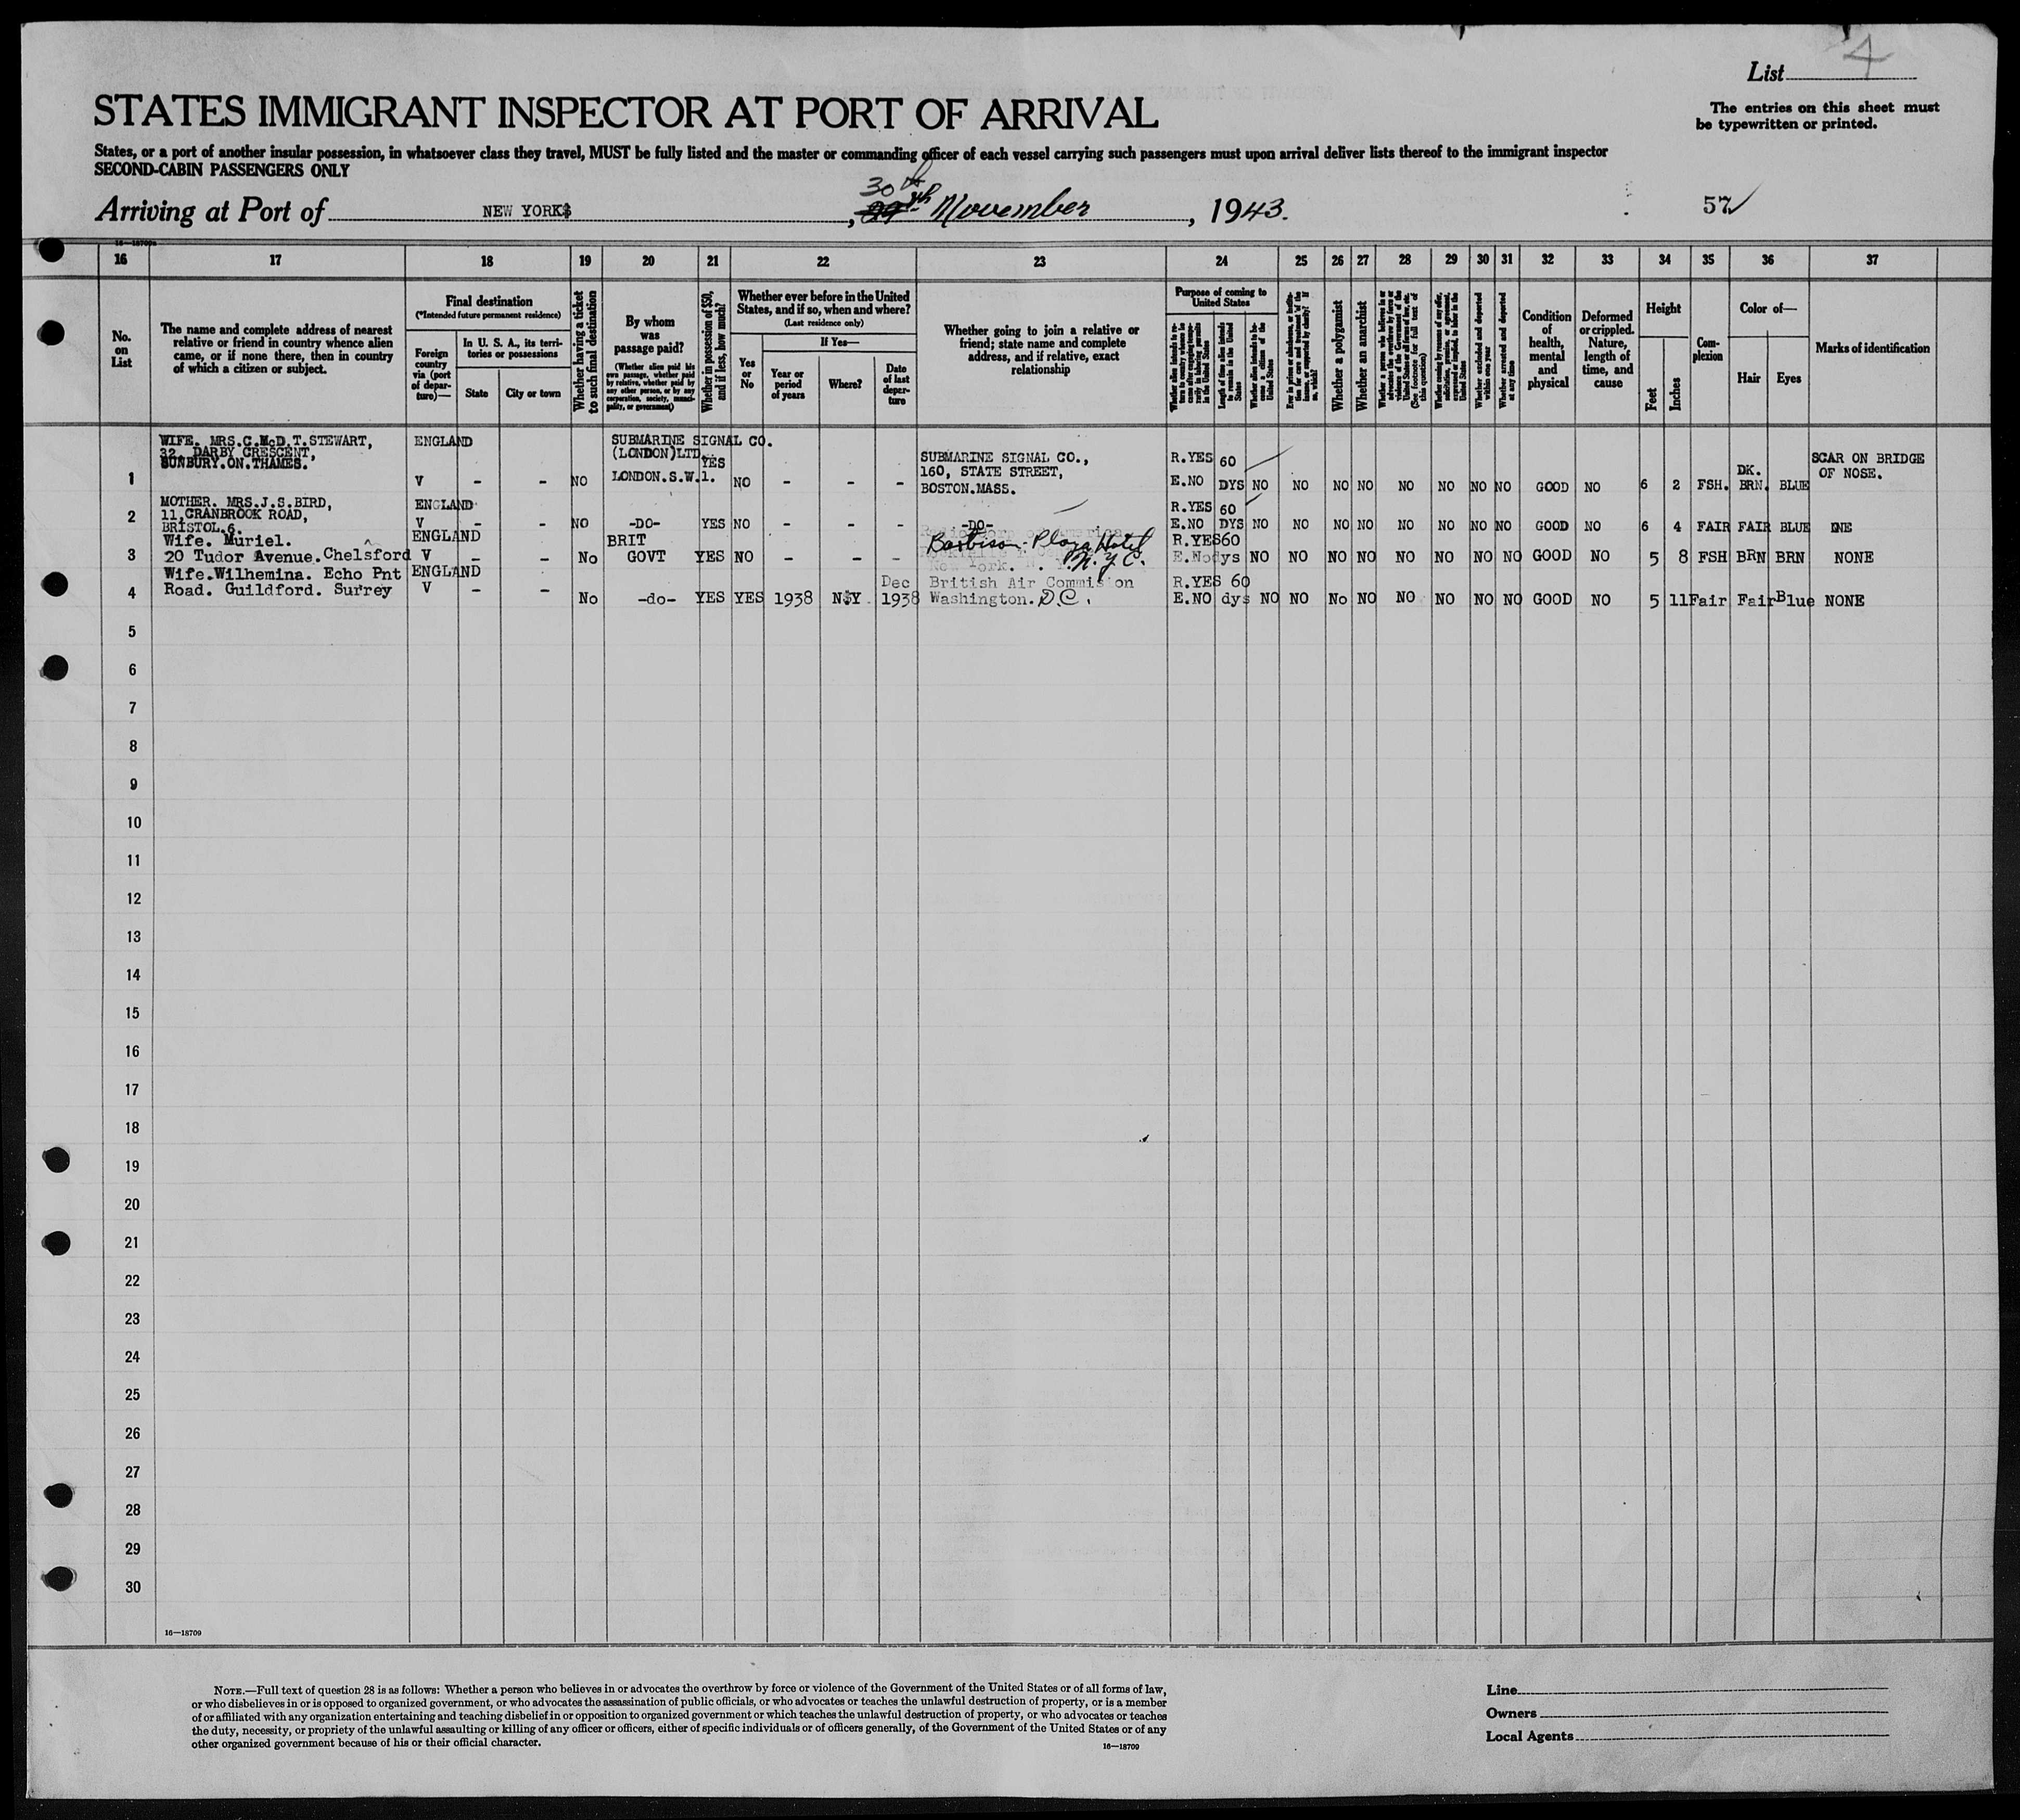 4
List
The entries on this sheet must
be typewritten or printed.
STATES IMMIGRANT INSPECTOR AT PORT OF ARRIVAL
States, or a port of another insular possession, in whatsoever class they travel, MUST be fully listed and the master or commanding officer of each vessel carrying such passengers must upon arrival deliver lists thereof to the immigrant inspector
SECOND-CABIN PASSENGERS ONLY
Arriving at Port of NEW YORK, 30th November, 1943.
57
16 17 18 19 20 21 22 23 24 25 26 27 28 29 30 31 32 33 34 35 36 37
No.
on
List
The name and complete address of nearest
relative or friend in country whence alien
came, or if none there, then in country
of which a citizen or subject.
Final destination
(*Intended future permanent residence)
Foreign
country
via (port
of depar-
ture)—
In U. S. A., its terri-
tories or possessions
State
City or town
Whether having a ticket
to such final destination
By whom
was
passage paid?
(Whether alien paid his
own passage, whether paid
by relative, whether paid by
any other person, or by any
corporation, society, munici-
pality, or government)
Whether in possession of $50,
and if less, how much?
Whether ever before in the United
States, and if so, when and where?
(Last residence only)
Yes
or
No
If Yes—
Year or
period
of years
Where?
Date
of last
depar-
ture
Whether going to join a relative or
friend; state name and complete
address, and if relative, exact
relationship
Purpose of coming to
United States
Length of time alien intends
to remain in the United
States
Whether alien intends to be-
come a citizen of the
United States
Whether a polygamist
Whether an anarchist
Whether excluded and deported
within one year
Whether arrested and deported
at any time
Condition
of
health,
mental
and
physical
Deformed
or crippled.
Nature,
length of
time, and
cause
Height
Feet
Inches
Com-
plexion
Color of—
Hair
Eyes
Marks of identification
WIFE. MRS.C.McD.T.STEWART,
32, DARBY CRESCENT,
SUNBURY.ON.THAMES.
1 ENGLAND V - - NO SUBMARINE SIGNAL CO. (LONDON)LTD. LONDON.S.W.1. YES NO - - - SUBMARINE SIGNAL CO., 160, STATE STREET, BOSTON.MASS. R.YES E.NO 60 DYS NO NO NO NO NO NO NO NO GOOD NO 6 2 FSH. DK. BRN. BLUE SCAR ON BRIDGE OF NOSE.
MOTHER. MRS.J.S.BIRD,
11,CRANBROOK ROAD,
BRISTOL.6.
2 ENGLAND V - - NO -DO- YES NO - - - -DO- R.YES E.NO 60 DYS NO NO NO NO NO NO NO NO GOOD NO 6 4 FAIR FAIR BLUE
Wife. Muriel.
20 Tudor Avenue. Chelsford
3 ENGLAND V - - No BRIT GOVT YES NO - - - Barbison-Plaza Hotel N.Y.C. R.YES E.No 60 dys NO NO NO NO NO NO NO NO GOOD NO 5 8 FSH BRN BRN NONE
Wife.Wilhemina. Echo Pnt
Road. Guildford. Surrey
4 ENGLAND V - - No -do- YES YES 1938 NY Dec 1938 British Air Commision Washington. D.C. R.YES E.NO 60 dys NO NO No NO NO NO NO NO GOOD NO 5 11 Fair Fair Blue NONE
5
6
7
8
9
10
11
12
13
14
15
16
17
18
19
20
21
22
23
24
25
26
27
28
29
30
16—18709
NOTE.—Full text of question 28 is as follows: Whether a person who believes in or advocates the overthrow by force or violence of the Government of the United States or of all forms of law,
or who disbelieves in or is opposed to organized government, or who advocates the assassination of public officials, or who advocates or teaches the unlawful destruction of property, or is a member
of or affiliated with any organization entertaining and teaching disbelief in or opposition to organized government or which teaches the unlawful destruction of property, or who advocates or teaches
the duty, necessity, or propriety of the unlawful assaulting or killing of any officer or officers, either of specific individuals or of officers generally, of the Government of the United States or of any
other organized government because of his or their official character.
16—18709
Line
Owners
Local Agents